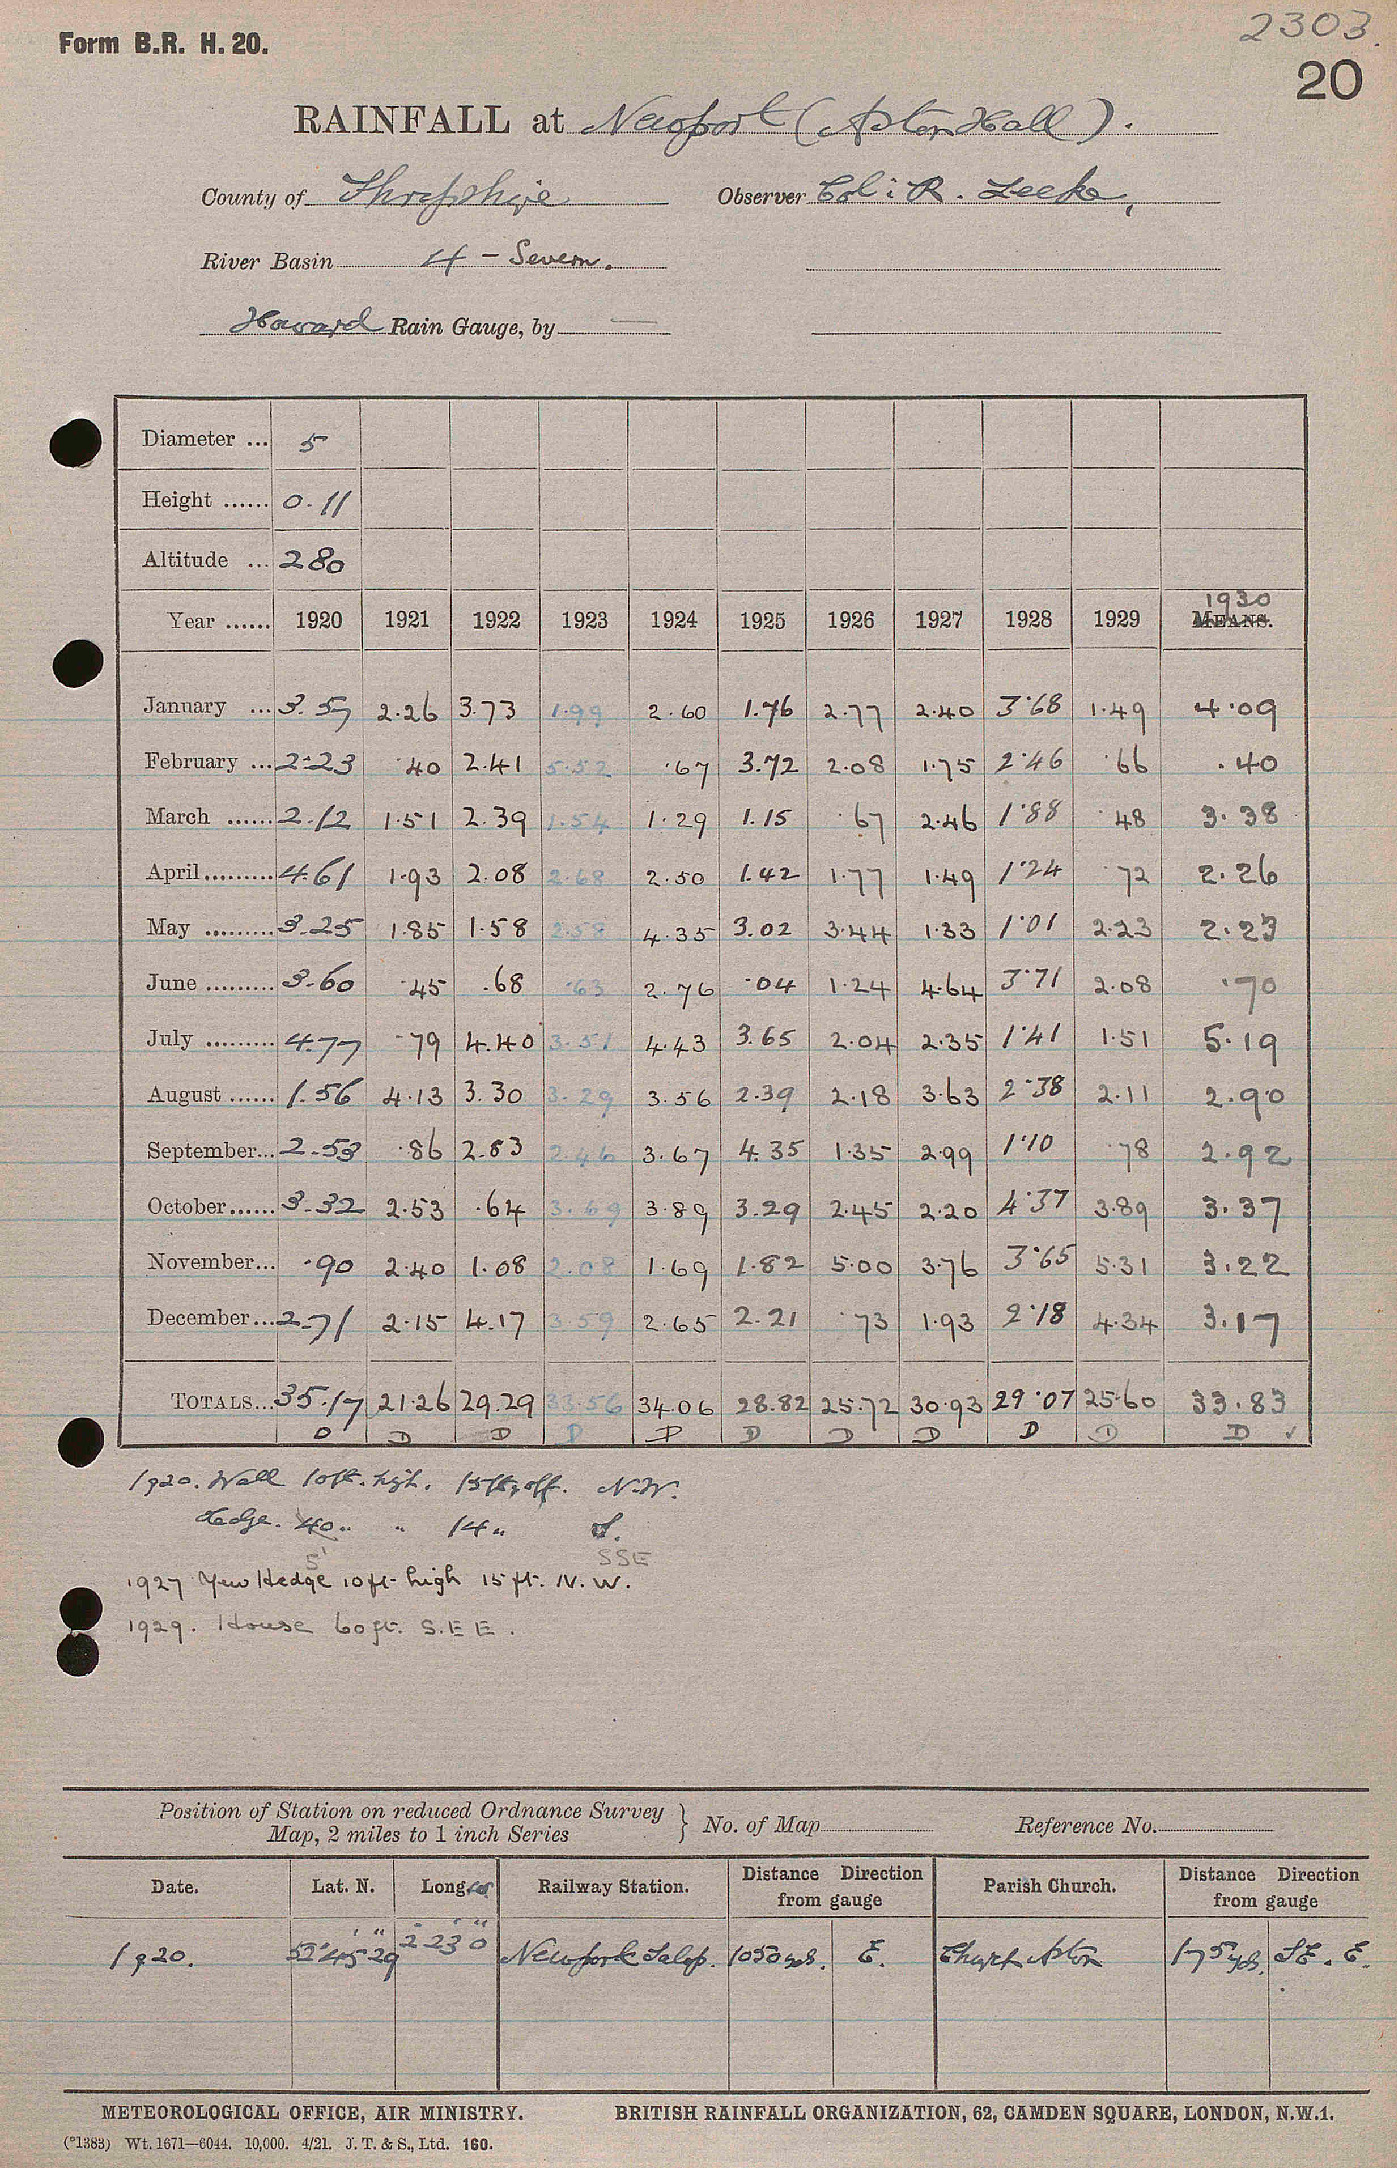 Form B.R. H. 20.
2303.
20
RAINFALL at Newport (Aston Hall).
County of Shropshire Observer Col: R. Leeke,
River Basin 4 - Severn.
Howard Rain Gauge, by —
Diameter ... 5
Height ...... 0.11
Altitude ... 280
1930
Year ...... 1920 1921 1922 1923 1924 1925 1926 1927 1928 1929 MEANS.
January ... 3.57 2.26 3.73 1.99 2.60 1.76 2.77 2.40 3.68 1.49 4.09
February ... 2.23 .40 2.41 5.52 .67 3.72 2.08 1.75 2.46 .66 .40
March ...... 2.12 1.51 2.39 1.54 1.29 1.15 .67 2.46 1.88 .48 3.38
April ......... 4.61 1.93 2.08 2.68 2.50 1.42 1.77 1.49 1.24 .72 2.26
May ......... 3.25 1.85 1.58 2.58 4.35 3.02 3.44 1.33 1.01 2.23 2.23
June ......... 3.60 .45 .68 .63 2.76 .04 1.24 4.64 3.71 2.08 .70
July ......... 4.77 .79 4.40 3.51 4.43 3.65 2.04 2.35 1.41 1.51 5.19
August ...... 1.56 4.13 3.30 3.29 3.56 2.39 2.18 3.63 2.38 2.11 2.90
September... 2.53 .86 2.83 2.46 3.67 4.35 1.35 2.99 1.10 .78 2.92
October...... 3.32 2.53 .64 3.69 3.89 3.29 2.45 2.20 4.37 3.89 3.37
November... .90 2.40 1.08 2.08 1.69 1.82 5.00 3.76 3.65 5.31 3.22
December... 2.71 2.15 4.17 3.59 2.65 2.21 .73 1.93 2.18 4.34 3.17
TOTALS... 35.17 21.26 29.29 33.56 34.06 28.82 25.72 30.93 29.07 25.60 33.83
D D D D D D D D D D D ✓
1920. Wall 10ft. high. 15ft. off. N.W.
Hedge. 40 " " 14 " S.
5' SSE
1927 Yew Hedge 10ft high 15 ft. N.W.
1929. House 60ft. S.E E.
Position of Station on reduced Ordnance Survey
Map, 2 miles to 1 inch Series } No. of Map Reference No.
Date. Lat. N. Long. W Railway Station. Distance Direction from gauge Parish Church. Distance Direction from gauge
1920. 52° 45' 29" 2° 23' 0" Newport Salop. 1050 yds. E. Church Aston 175 yds. SE. E.
METEOROLOGICAL OFFICE, AIR MINISTRY. BRITISH RAINFALL ORGANIZATION, 62, CAMDEN SQUARE, LONDON, N.W.1.
(*1383) Wt. 1671—6044. 10,000. 4/21. J. T. & S., Ltd. 160.